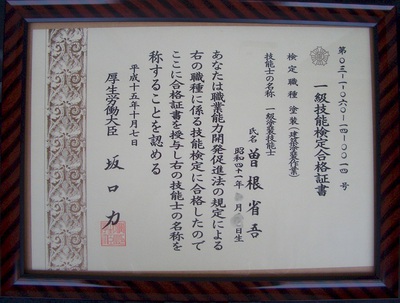 第０３－１－０６０－１４－００１４号
一級技能検定合格証書
検定職種 塗装（建築塗装作業）
技能士の名称 一級塗装技能士
氏名 曽根省吾
昭和四十一年 月 日生
あなたは職業能力開発促進法の規定による
右の職種に係る技能検定に合格したので
ここに合格証書を授与し右の技能士の名称を
称することを認める
平成十五年十月七日
厚生労働大臣 坂口力